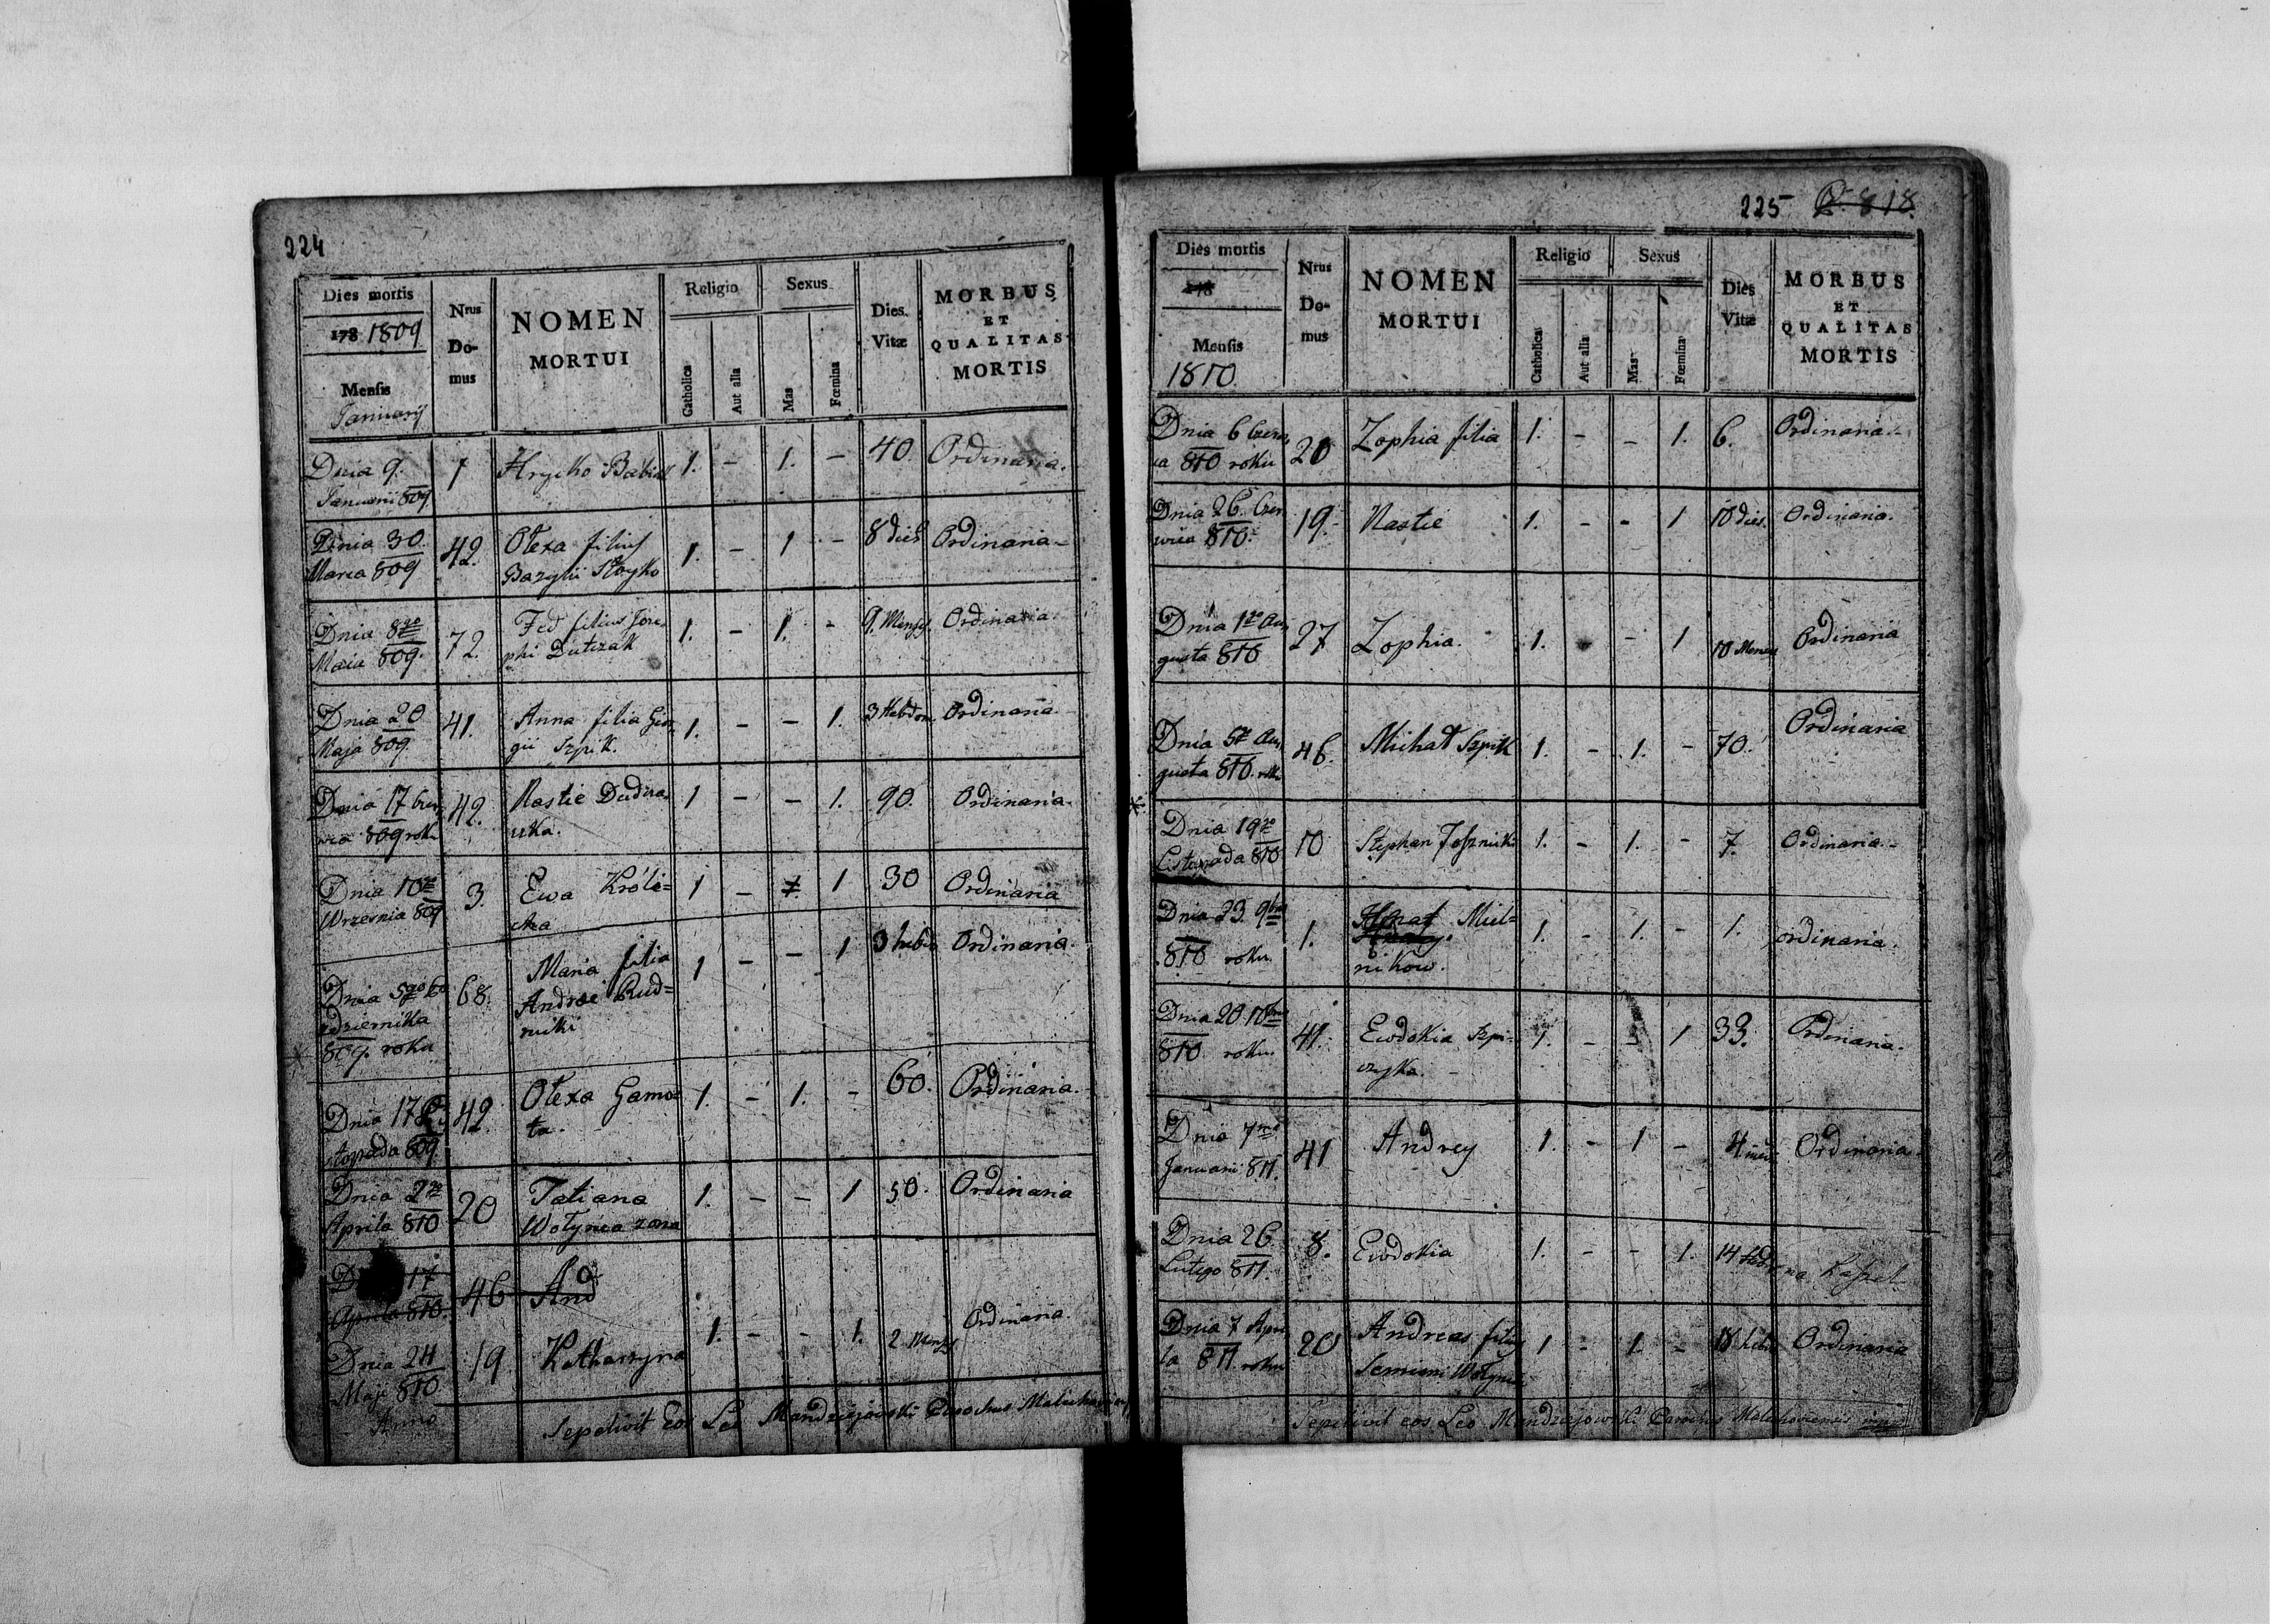 224
Dies mortis
178 1809
Mensis
Januarij
Nrus Domus
NOMEN
MORTUI
Religio
Catholica
Aut alia
Sexus
Mas
Fœmina
Dies Vitæ
MORBUS
ET
QUALITAS
MORTIS
Dnia 9. 1 Hrycko Babiak 1. - 1. - 40 Ordinaria.
Januarii 809.
Dnia 30. 42. Olexa filius 1. - 1 - 8 dies Ordinaria-
Marca 809 Bazylii Stoyko
Dnia 8go 72. Fed filius Jose- 1. - 1. - 9. Menses. Ordinaria.
Maia 809. phi Dutczak
Dnia 20 41. Anna filia Geor- 1. - - 1. 3 Hebdom. Ordinaria.
Maja 809. gii Szpik.
Dnia 17 Czer- 42. Nastie 1 - - 1. 90. Ordinaria.
wca 809 roku
Dnia 10 3. Ewa Króli= 1 - 1. 1 30 Ordinaria
Wrzesnia 809 cka
Dnia 5go 68. Maria filia 1 - - 1 3 hebd Ordinaria.
zdziernika Andrei Rud=
809. roku nicki
Dnia 17 Li 42. Olexa Gamo= 1. - 1. - 60. Ordinaria.
stopada 809. ta.
Dnia 2go 20 Tatiana 1. - - 1 50. Ordinaria
Aprila 810 Wołyńca zona
17 46 And
Aprila 810.
Dnia 24 19. Katharzyna 1. - - 1. 2. Menses Ordinaria.
Maji 810
Anno
Sepelivit Eos Leo Mandziejowski Parochus
225
818.
Dies mortis
178
Mensis
1810.
Nrus Domus
NOMEN
MORTUI
Religio
Catholica
Aut alia
Sexus
Mas
Fœmina
Dies Vitæ
MORBUS
ET
QUALITAS
MORTIS
Dnia 6 Czerw- 20 Zophia filia 1. - - 1. 6. Ordinaria.-
ca 810 roku
Dnia 26. Czer- 19. Nastie 1. - - 1 10 dies. Ordinaria.
wca 810.
Dnia 1go Au- 27 Zophia. 1. - 1 10 Menses Ordinaria
gusta 810
Dnia 5 Au- 46. Michał Szpik 1. - 1. - 70. Ordinaria
gusta 810. roku
Dnia 19go 10 Stephan 1. - 1. - 7. Ordinaria.-
Listopada 810
Dnia 23. 9bris 1. Miel= 1. - 1. - 1. ordinaria.
810 roku. nikow.
Dnia 20 10bris 41. Ewdokia Szpi- 1. - - 1 33. Ordinaria.
810 roku. czyka.
Dnia 7ma 41 Andrey 1. - 1 - 4 Ordinaria.
Januarii 811.
Dnia 26 8. Ewdokia 1. - - 1. 14 na Kaszel
Lutego 811.
Dnia 7 Apri- 20 Andreas filius 1 - 1. - 18 hebd Ordinaria
la 811. roku Semioni
Sepelivit eos Leo Mandziejowski Parochus